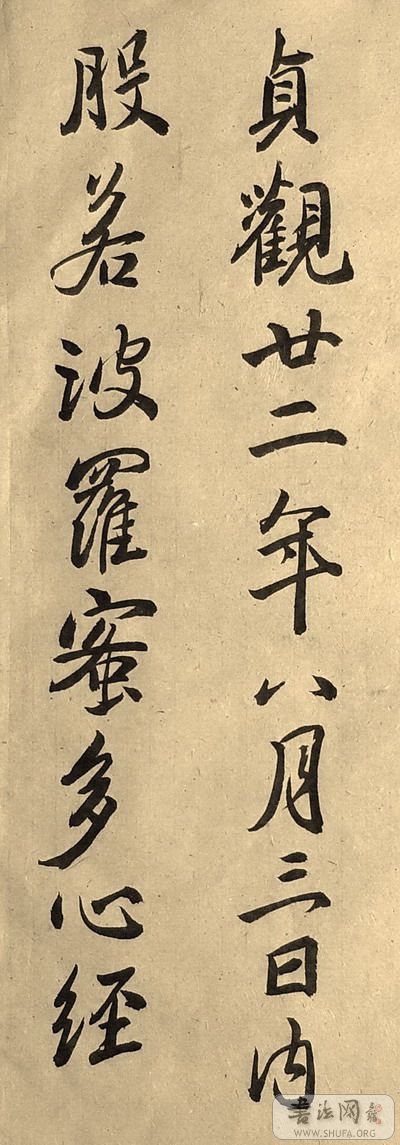 貞觀廿二年八月三日内
般若波羅蜜多心經
書法网
WWW.SHUFA.ORG